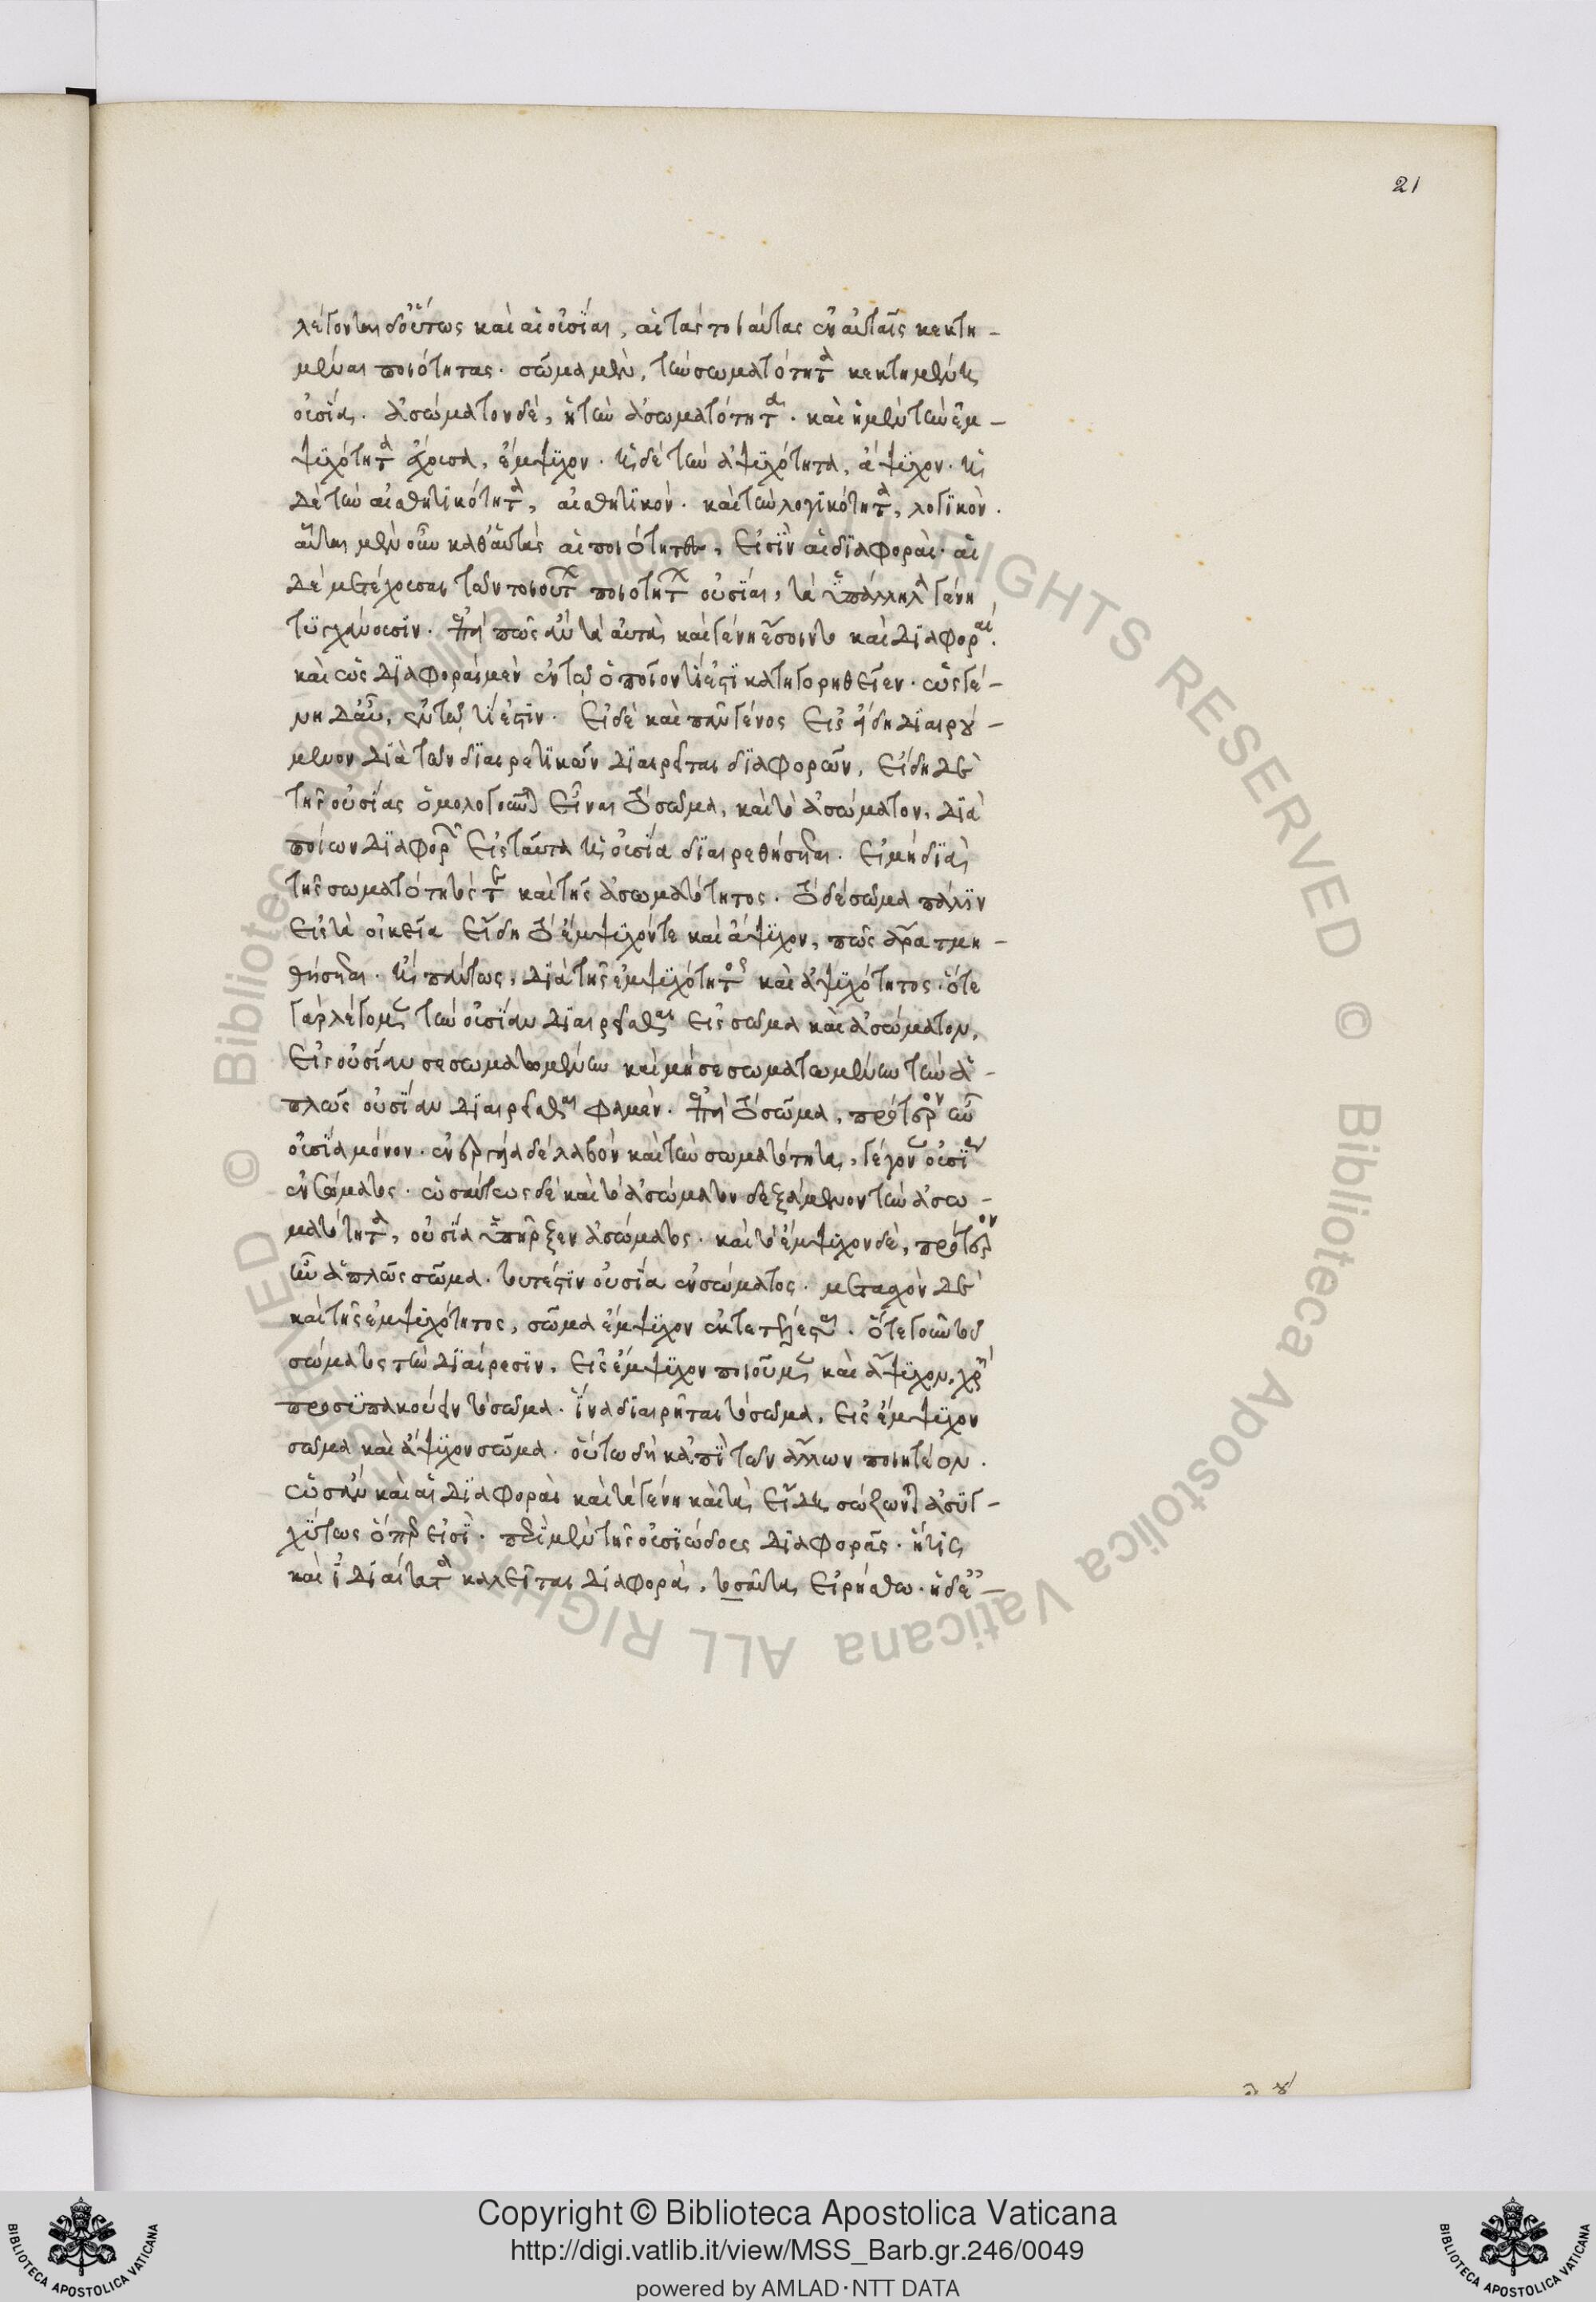 21
λέγονται δ' οὕτως καὶ αἱ οὐσίαι, αἱ τὰς τοιαύτας ἐν αὐταῖς κεκτη-
μέναι ποιότητας. σῶμα μὲν, τὴν σωματότητα κεκτημένη
οὐσία. ἀσώματον δὲ, ἡ τὴν ἀσωματότητα. καὶ ἡ μὲν τὴν ἐμ-
ψυχότητα ἔχουσα, ἔμψυχον. ἡ δὲ τὴν ἀψυχότητα, ἄψυχον. ἡ
δὲ τὴν αἰσθητικότητα, αἰσθητικὸν. καὶ τὴν λογικότητα, λογικὸν.
αὗται μὲν οὖν καθ' αὑτὰς αἱ ποιότητες, εἰσὶν αἱ διαφοραὶ. αἱ
δὲ μετέχουσαι τῶν τοιούτων ποιοτήτων οὐσίαι, τὰ ὑπάλληλα γένη
τυγχάνουσιν. ἐπεὶ πῶς ἂν τὰ αὐτὰ καὶ γένη ἔσοιντο καὶ διαφοραί.
καὶ ὡς διαφοραὶ μὲν ἐν τῷ ὁποῖον τί ἐστι κατηγορηθεῖεν. ὡς γέ-
νη δ' αὖ, ἐν τῷ τί ἐστιν. εἰ δὲ καὶ πᾶν γένος εἰς εἴδη διαιρού-
μενον διὰ τῶν διαιρετικῶν διαιρεῖται διαφορῶν, εἴδη δὲ
τῆς οὐσίας ὁμολογοῦνται εἶναι τὸ σῶμα, καὶ τὸ ἀσώματον, διὰ
ποίων διαφορῶν εἰς ταῦτα ἡ οὐσία διαιρεθήσεται. εἰ μὴ διὰ
τῆς σωματότητός τε καὶ τῆς ἀσωματότητος. τὸ δὲ σῶμα πάλιν
εἰς τὰ οἰκεῖα εἴδη τὸ ἔμψυχόν τε καὶ ἄψυχον, πῶς ἄρα τμη-
θήσεται. ἢ πάντως, διὰ τῆς ἐμψυχότητος καὶ ἀψυχότητος. ὅτε
γὰρ λέγομεν τὴν οὐσίαν διαιρεῖσθαι εἰς σῶμα καὶ ἀσώματον,
εἰς οὐσίαν σεσωματωμένην καὶ μὴ σεσωματωμένην τὴν ἁ-
πλῶς οὐσίαν διαιρεῖσθαι φαμὲν. ἐπεὶ τὸ σῶμα, πρότερον ἦν
οὐσία μόνον. ἐνεργείᾳ δὲ λαβὸν καὶ τὴν σωματότητα, γέγονεν οὐσία
ἐνσώματος. ὡσαύτως δὲ καὶ τὸ ἀσώματον δεξάμενον τὴν ἀσω-
ματότητα, οὐσία ὑπῆρξεν ἀσώματος. καὶ τὸ ἔμψυχον δὲ, πρότερον
ἦν ἁπλῶς σῶμα. τουτέστιν οὐσία ἐνσώματος. μετασχὸν δὲ
καὶ τῆς ἐμψυχότητος, σῶμα ἔμψυχον ἐκτετέλεσται. ὅτε γοῦν τοῦ
σώματος τὴν διαίρεσιν, εἰς ἔμψυχον ποιοῦμεν καὶ ἄψυχον, χρὴ
προσυπακούειν τὸ σῶμα. ἵνα διαιρῆται τὸ σῶμα, εἰς ἔμψυχον
σῶμα καὶ ἄψυχον σῶμα. οὕτω δὴ κἀπὶ τῶν ἄλλων ποιητέον.
ὡς ἂν καὶ αἱ διαφοραὶ καὶ τὰ γένη καὶ τὰ εἴδη σώζωνται ἀσυγ-
χύτως ὅπερ εἰσὶ. περὶ μὲν τῆς οὐσιώδους διαφορᾶς. ἥτις
καὶ ἰδιαίτατα καλεῖται διαφορὰ, τοσαῦτα εἰρήσθω. ἡ δὲ
Copyright © Biblioteca Apostolica Vaticana
http://digi.vatlib.it/view/MSS_Barb.gr.246/0049
powered by AMLAD·NTT DATA